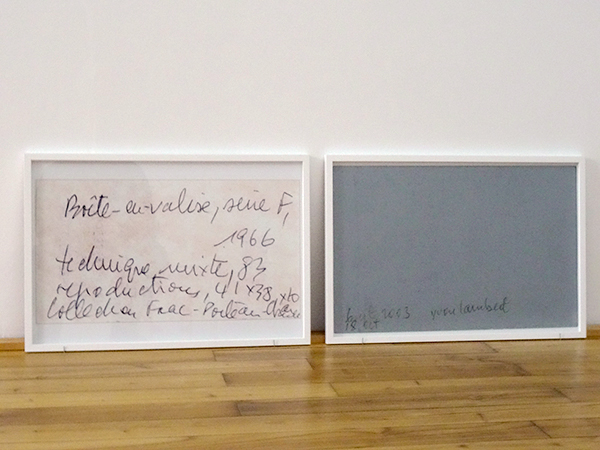 Boîte-en-valise, série F,
1966
technique mixte, 83
reproductions, 41×38,×10
Collection Frac-Poitou-
2003 yvon lambert